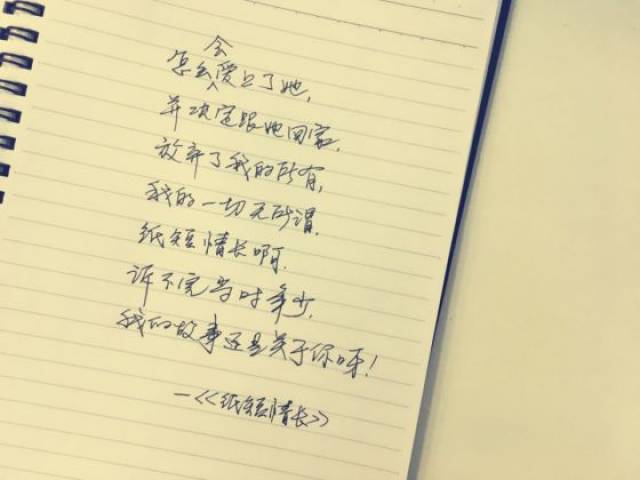 怎么会爱上了她,
并决定跟她回家,
放弃了我的所有,
我的一切无所谓.
纸短情长啊.
诉不完当时年少,
我的故事还是关于你呀!
—<<纸短情长>>